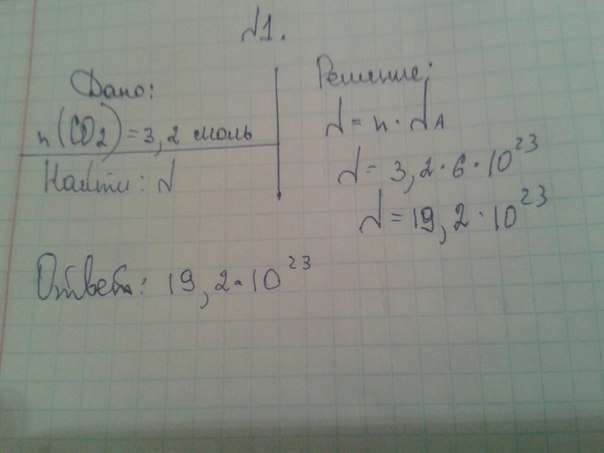 N1.
Дано:
n(CO2)=3,2 моль
Найти: N
Решение:
N=n·NA
N=3,2·6·10^23
N=19,2·10^23
Ответ: 19,2·10^23